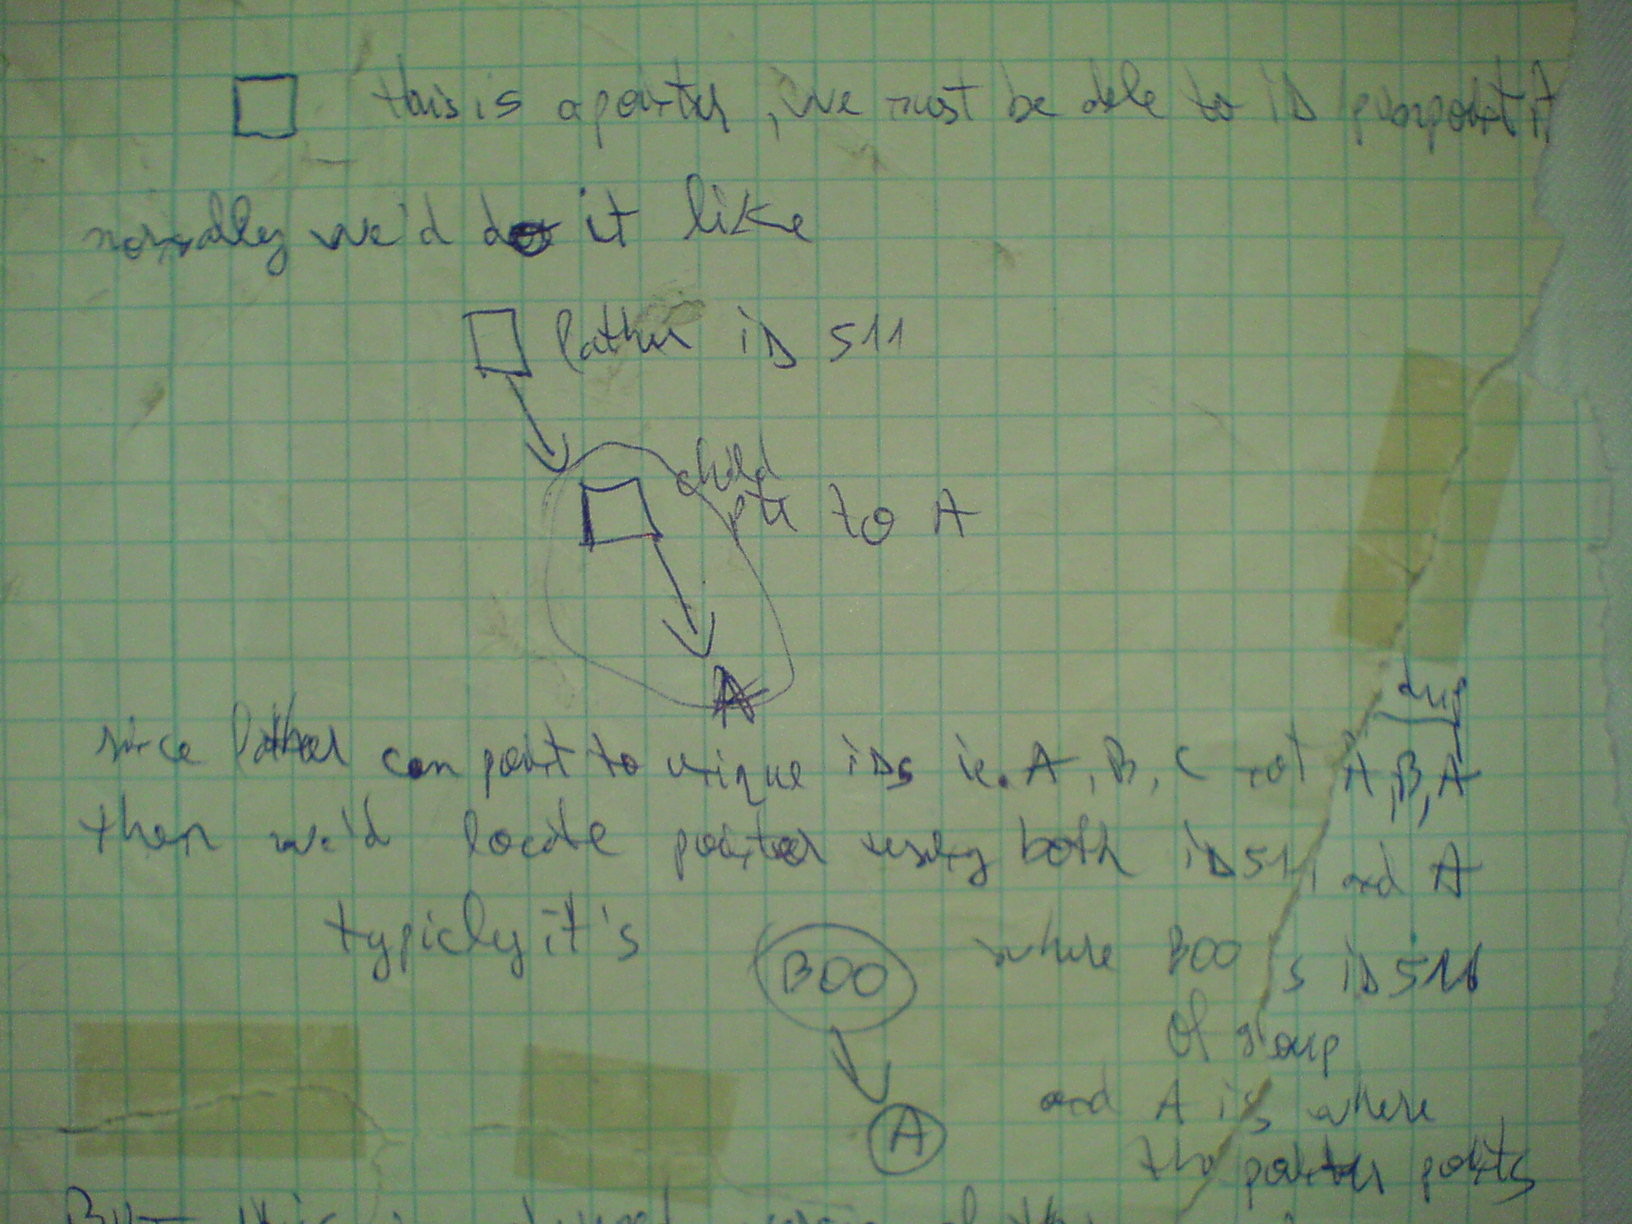 this is a pointer, we must be able to ID pinpoint it
normally we'd do it like
father ID 511
child
ptr to A
A
dup
since father can point to unique IDs ie. A, B, C not A, B, A
then we'd locate pointer using both ID 511 and A
typicly it's
BOO
where BOO is ID 511
of group
A
and A is where
the pointer points